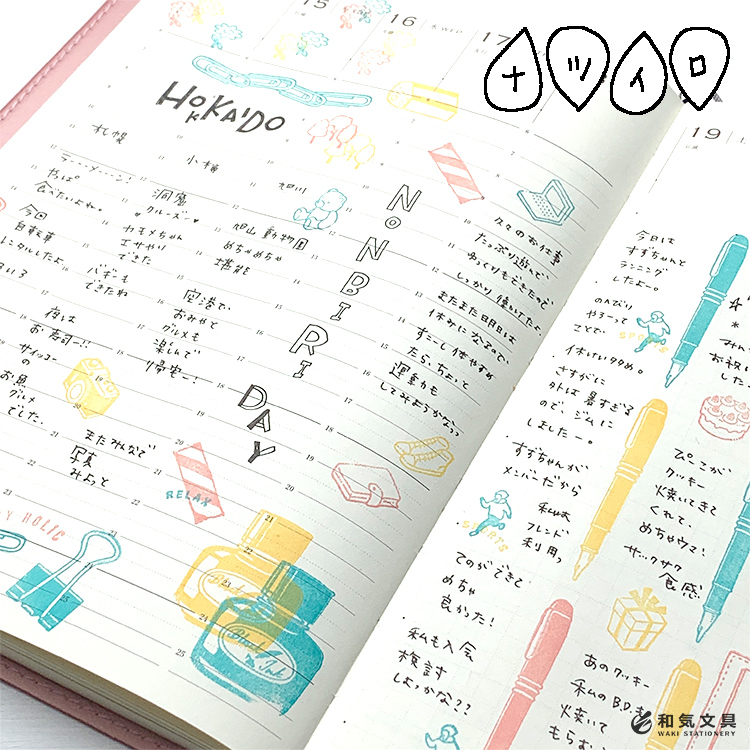 ナツイロ
15
16
17
HOKKAIDO
札幌
小樽
旭川
ラーメーーン!
やっぱ
食べたいよね。
今回
自転車
レンタルしたよ
夜は
お寿司ー!!
サイッコー
の
お魚
グルメ
でした。
洞窟
クルーズ〜
カモメちゃん
エサやり
できた
バギーも
できたね
空港で
おみやと
グルメも
楽しんで
帰宅ー!
またみんなで
写真
みよっと
旭山動物園
めちゃめちゃ
堪能
NONBIRI
DAY
久々のお仕事
たっぷり遊んで
ゆっくりもできたので
しっかり働いてたよ
またまた明日は
休みになるので、
すこし体やすめ
たら、ちょっと
運動も
してみようかなっっ
RELAX
HOLIC
Black
Ink
19
今日は
すずちゃんと
ランニング
したよー。
のんびり
やすーって
ことで、
SPORTS
休いいタタめ。
さすがに
外は暑すぎる
ので、ジムに
しましたー。
すずちゃんが
メンバーだから
私は
フレンド
利用っ
SPORTS
てのができて
めちゃ
良かった!
私も入会
検討
しよっかな??
ぴこが
クッキー
焼いてきて
くれて、
めちゃウマ!
サックサク
食感
あのクッキー
私のB.D.も
焼いて
もらお
和気文具
WAKI STATIONERY